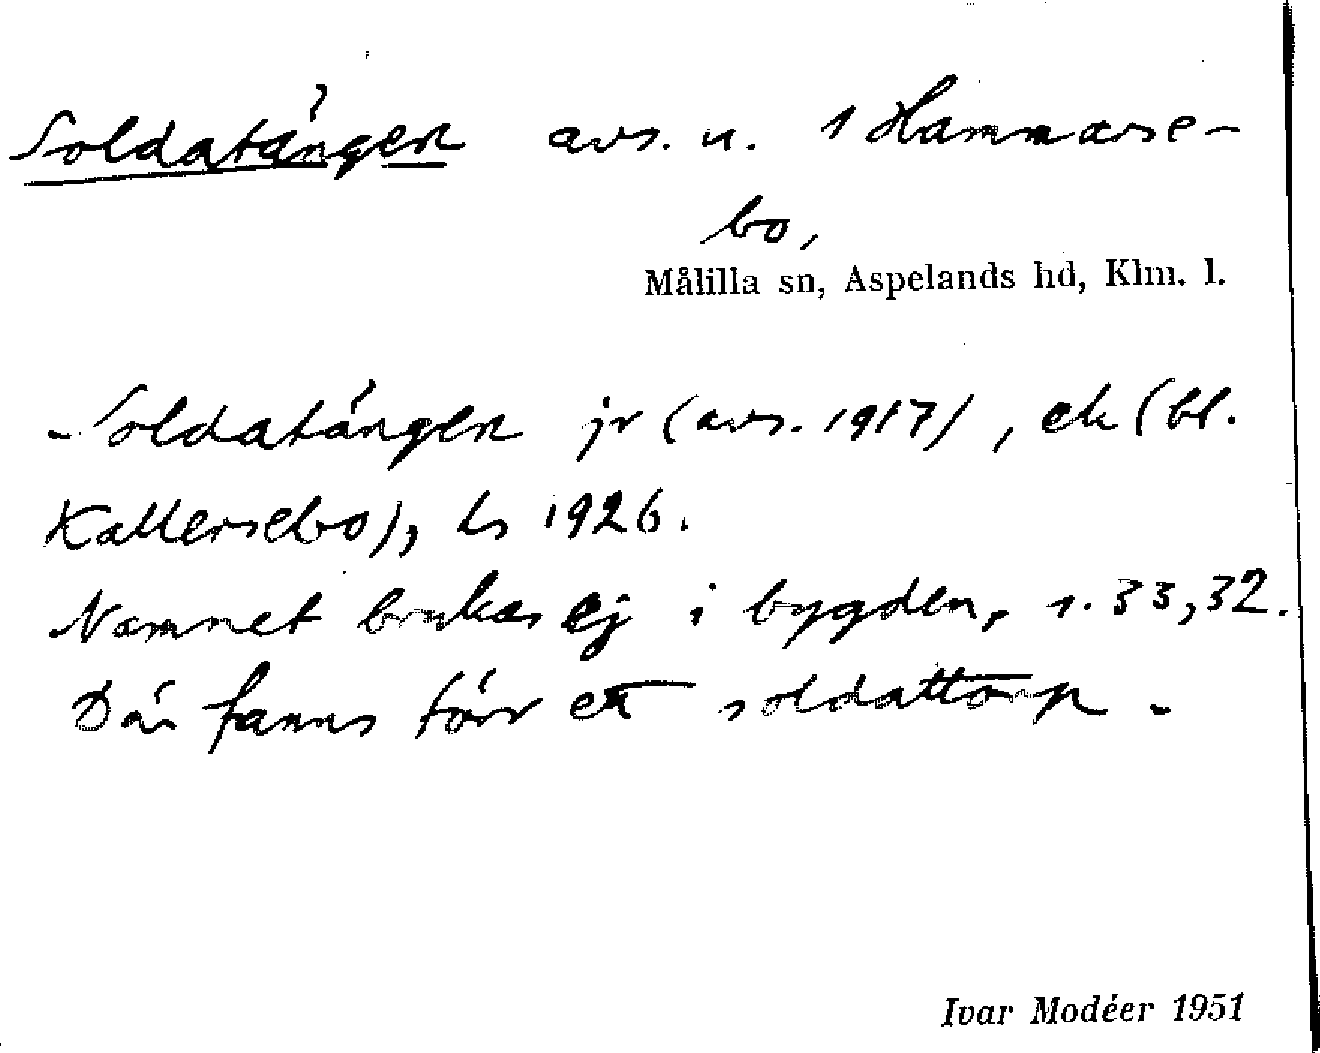 Soldatängen avs. u. 1 Hammarse-
bo,
Målilla sn, Aspelands hd, Klm. l.
Soldatängen jr (avs. 1917), ek (bl.
Kallersebo), ls 1926.
Namnet brukas ej i bygden, s. 33,32.
Där fanns förr ett soldattorp.
Ivar Modéer 1951